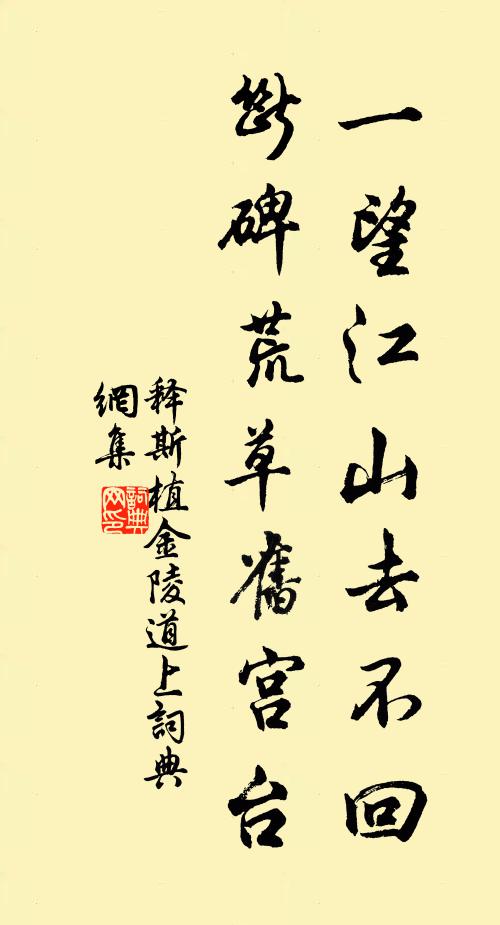 一望江山去不回
斷碑荒草舊宮台
释斯植金陵道上詞典
網集
詞典
网印